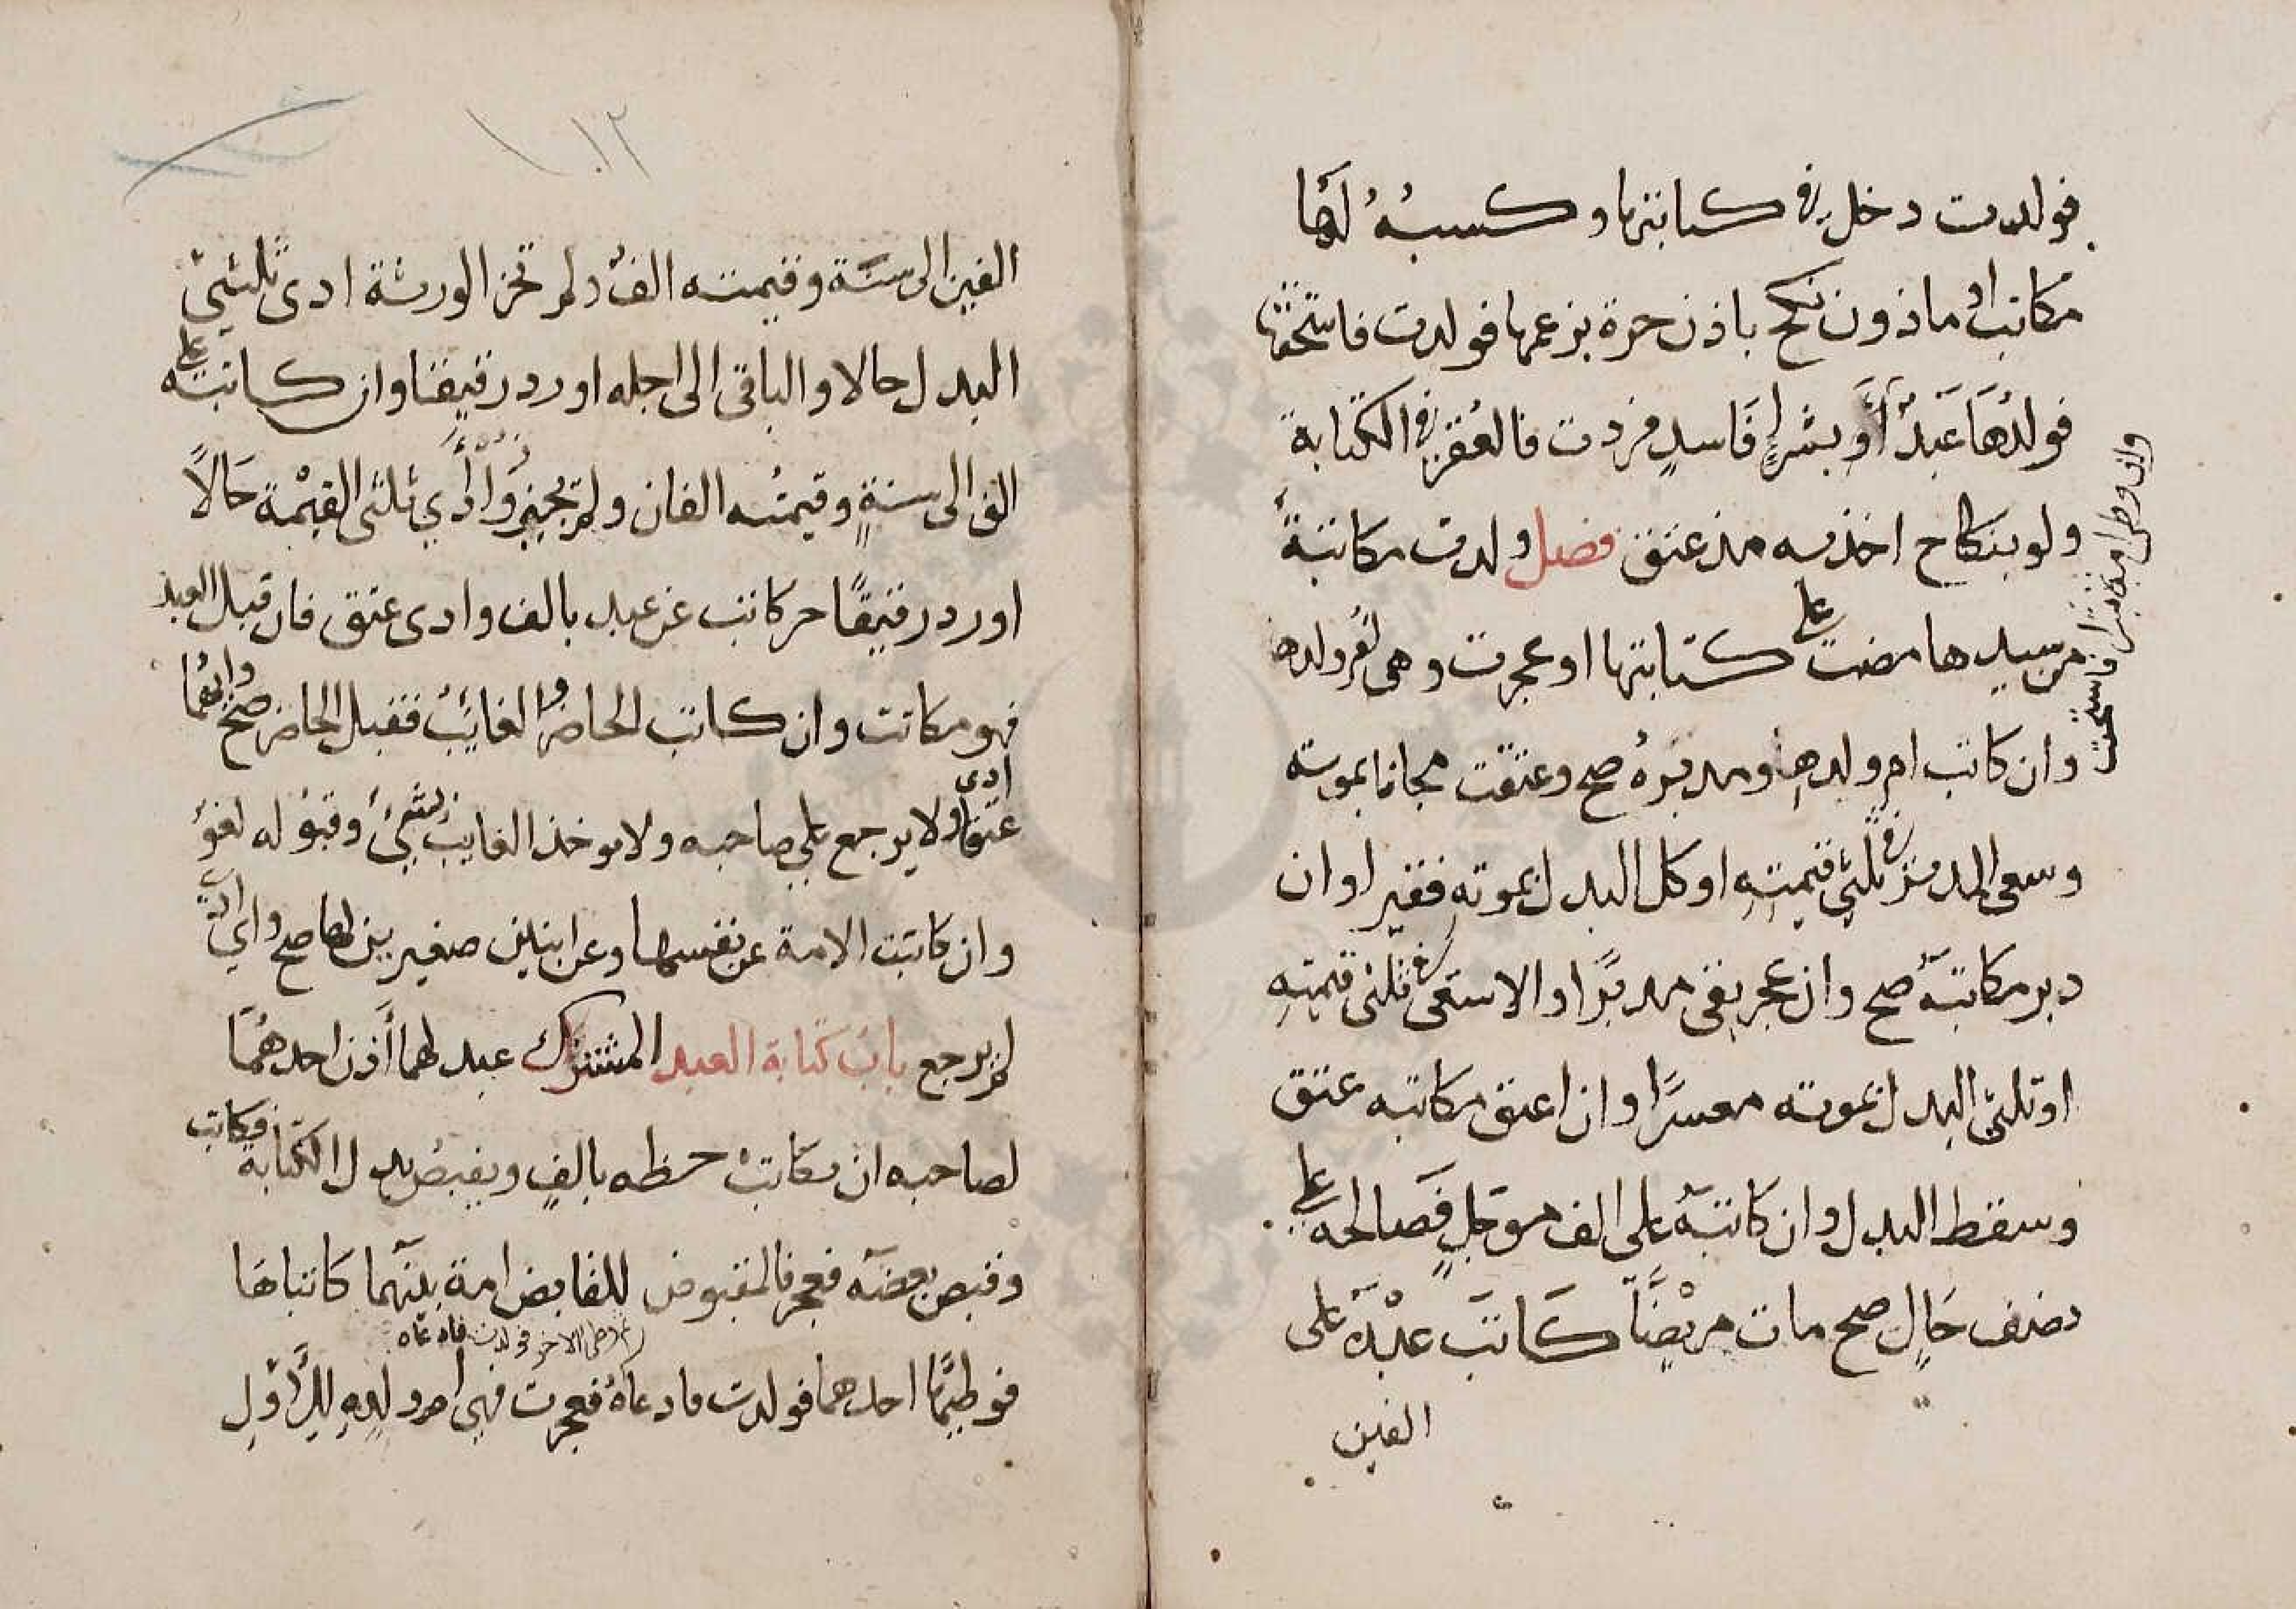 فولدت دخل في كتابتها وكسبه لها
مكاتب او ماذون نكح باذن حرة بزعمها فولدت فاستحقت
فولدها عبد او بشراء فاسد فردت فالعقر في الكتابة
ولو بنكاح اخذ به مذ عتق فصل ولدت مكاتبة
من سيدها مضت على كتابتها او عجزت وهي ام ولده
وان كاتب ام ولده او مدبره صح وعتقت مجانا بموته
وسعى المدبر في ثلثي قيمته او كل البدل بموته فقيرا وان
دبر مكاتبه صح وان عجز بقي مدبرا والا سعى في ثلثي قيمته
او ثلثي البدل بموته معسرا وان اعتق مكاتبه عتق
وسقط البدل وان كاتبه على الف موجل فصالحه على
نصف حال صح مات مريض كاتب عبده على
الفين
وان وطئ امة بشراء فاستحقت
١٠١٢
الفين الى سنة وقيمته الف ولم تجز الورثة ادى ثلثي
البدل حالا والباقي الى اجله او رد رقيقا وان كاتبه على
الف الى سنة وقيمته الفان ولم يجيزوا ادي ثلثي القيمة حالا
او رد رقيقا حر كاتب عن عبد بالف وادى عتق فان قبل العبد
فهو مكاتب وان كاتب الحاضر والغايب فقبل الحاضر صح وايهما
ادى عتقا ولا يرجع على صاحبه ولا يوخذ الغايب بشيئ وقبوله لغو
وان كاتبت الامة عن نفسها وعن ابنين صغيرين لها صح واي ادى
لم يرجع باب كتابة العبد المشترك عبد لهما أذن احدهما
لصاحبه ان يكاتب حظه بالف ويقبض بدل الكتابة فكاتب
وقبض بعضه فعجز فالمقبوض للقابض امة بينهما كاتباها
فوطيها احدهما فولدت فادعاه ثم وطئ الاخر فولدت فادعاه فعجزت فهي ام ولد للأول